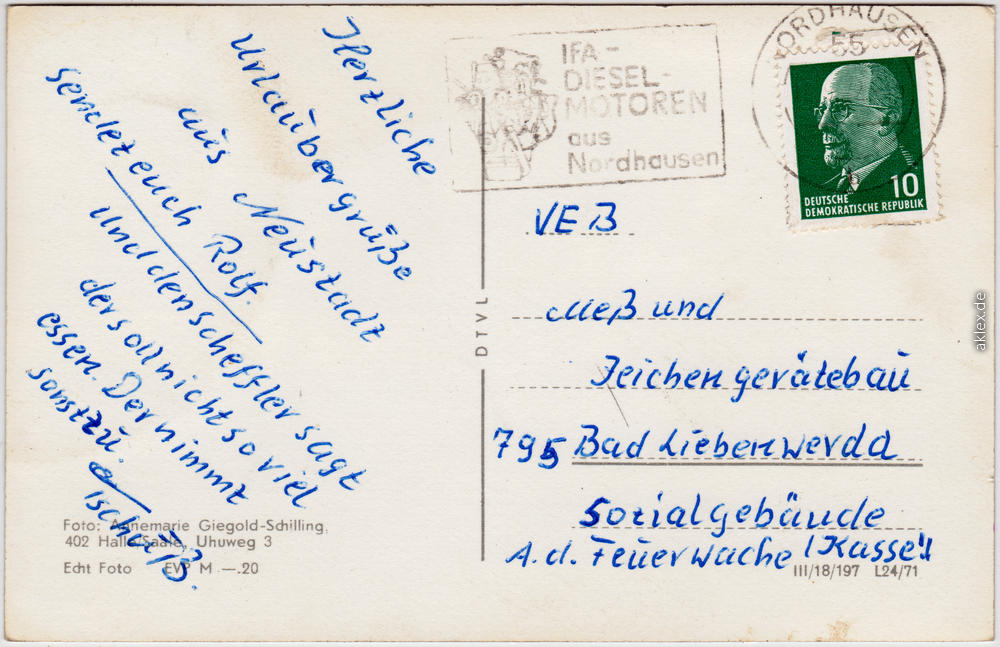 Herzliche
Urlaubergrüße
aus Neustadt
sendet euch Rolf.
Und den Scheffler sagt
der soll nicht so viel
essen. Der nimmt
sonst zu.
Tschüß.
Foto: Annemarie Giegold-Schilling,
402 Halle/Saale, Uhuweg 3
Echt Foto EVP M —.20
DTVL
IFA-
DIESEL-
MOTOREN
aus
Nordhausen
NORDHAUSEN
55
10
DEUTSCHE
DEMOKRATISCHE REPUBLIK
VEB
Meß und
Zeichengerätebau
795 Bad Liebenwerda
Sozialgebände
A.d. Feuerwache (Kasse!)
III/18/197 L24/71
aklex.de